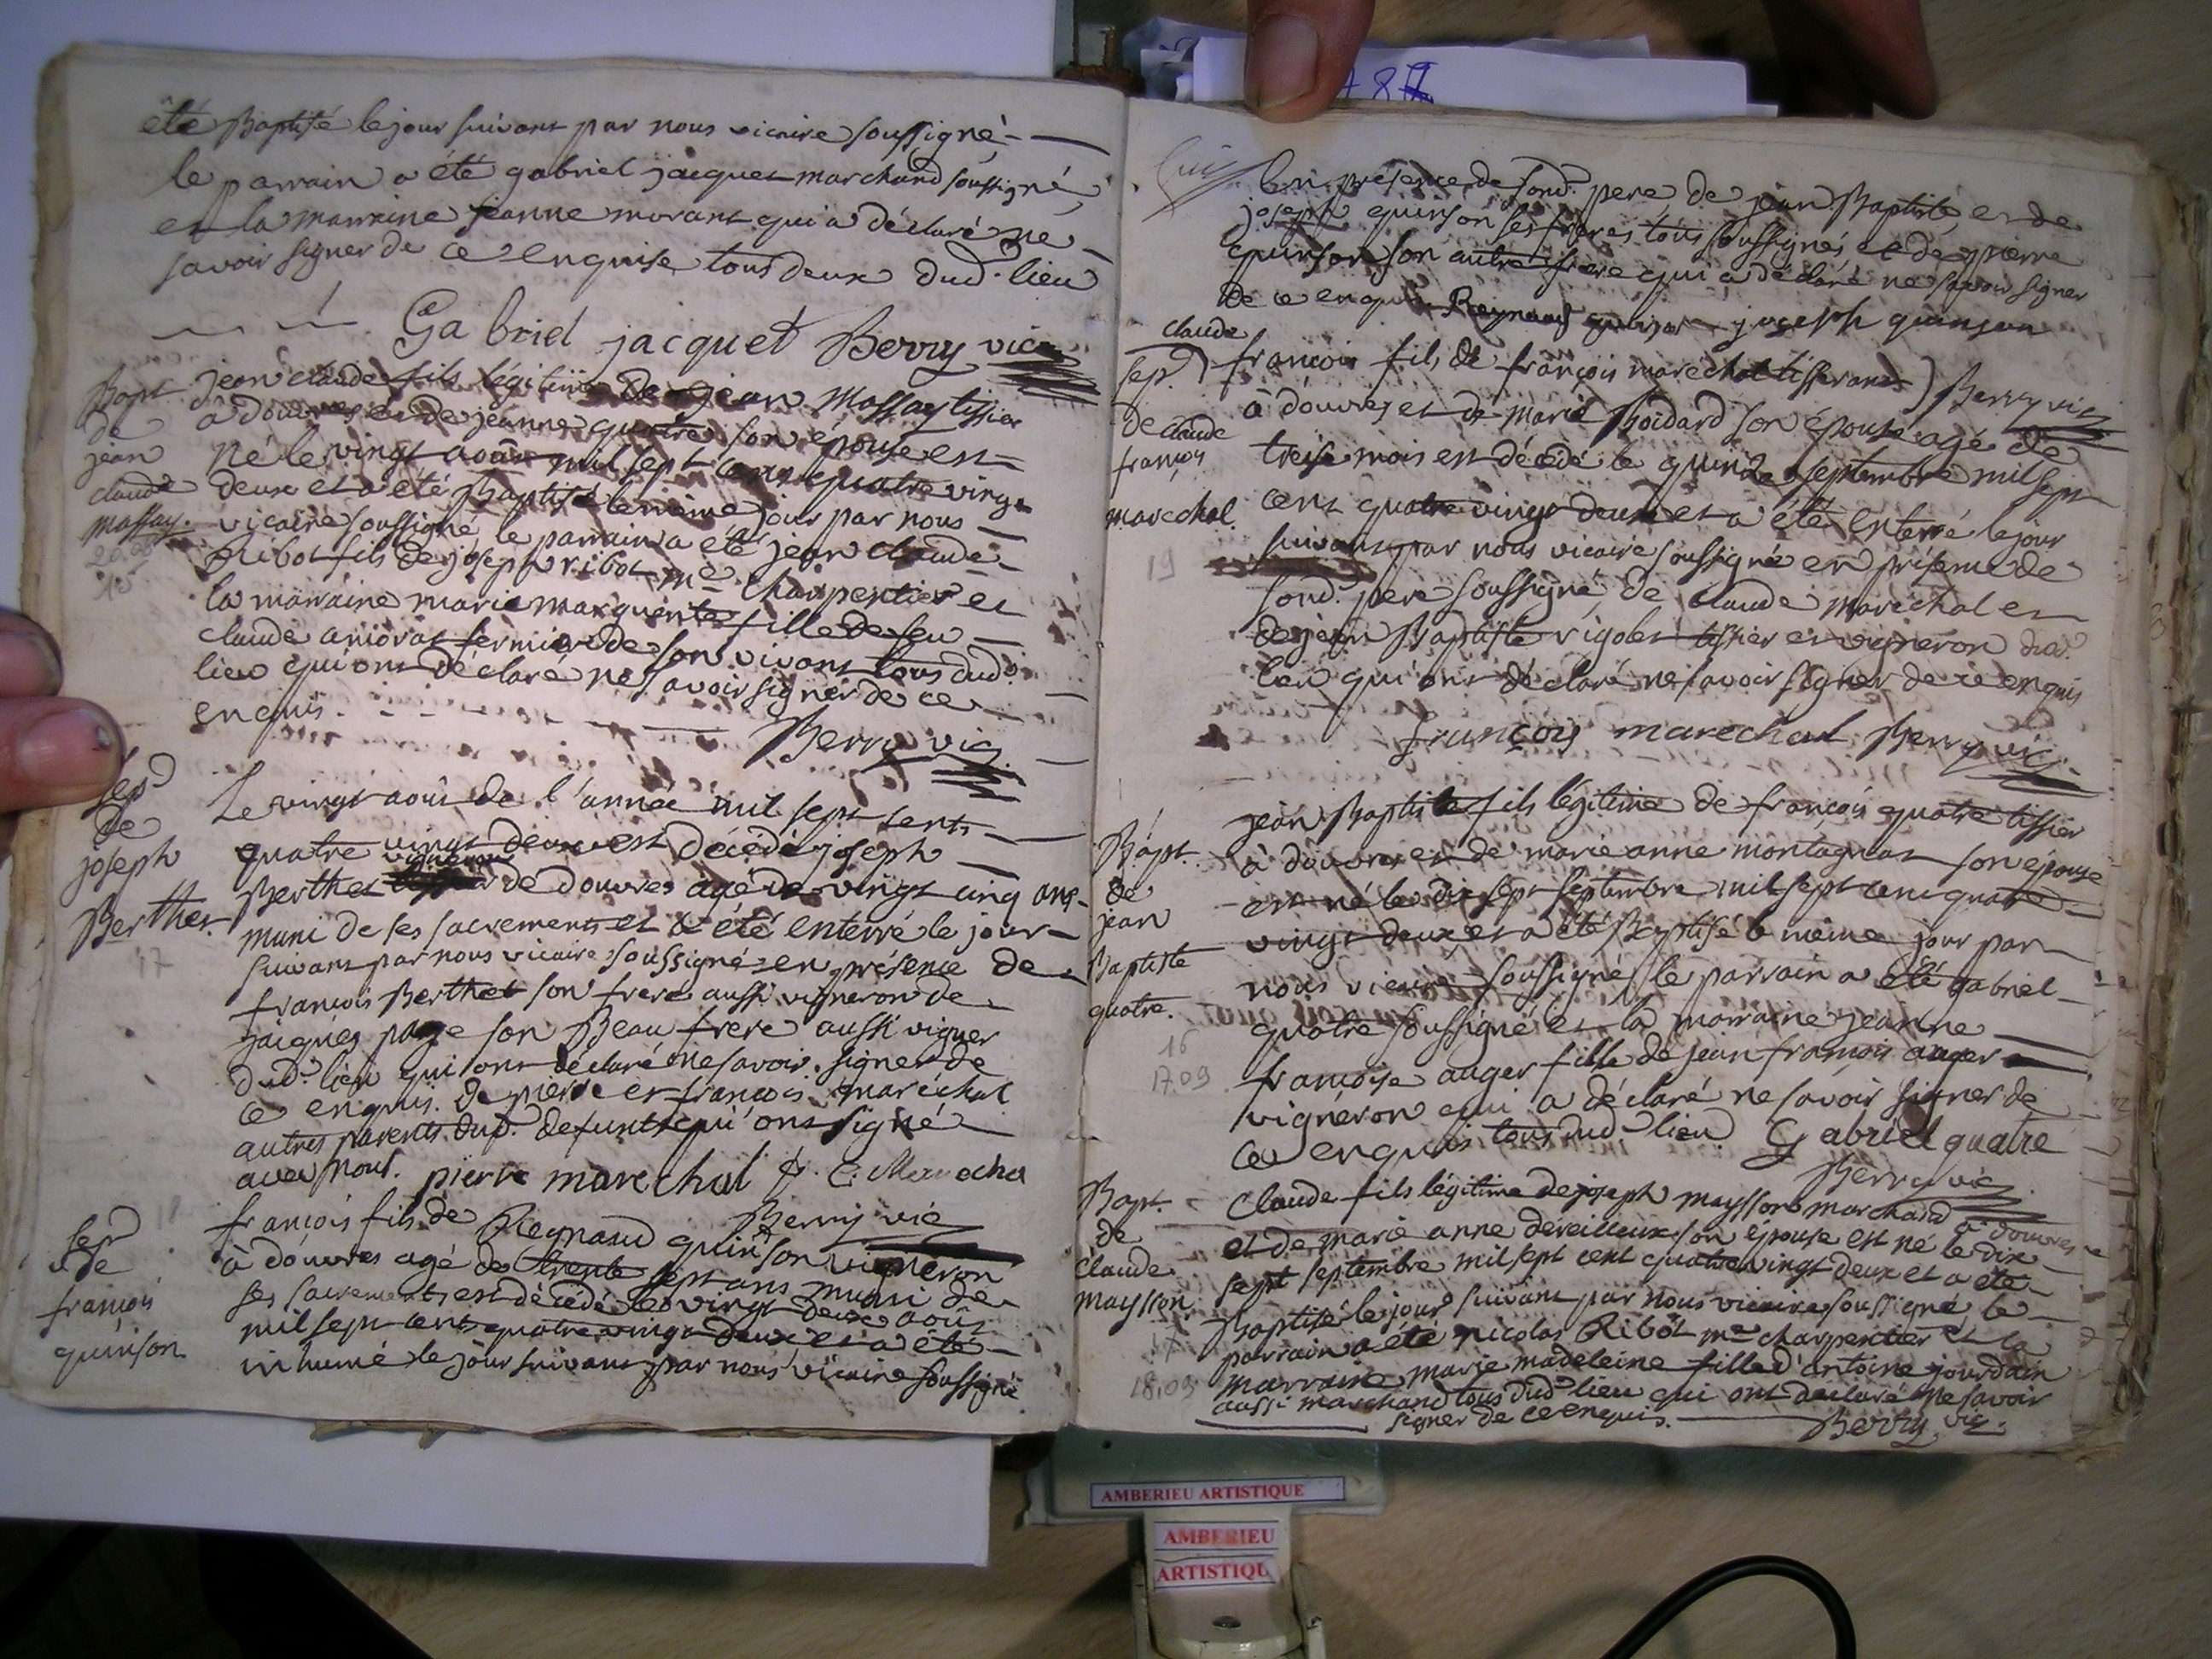 été Baptisé le jour suivant par nous vicaire soussigné
le parrain a été gabriel jacquet marchand soussigné
et la marraine jeanne morant qui a déclaré ne
savoir signer de ce enquise tous deux dud. lieu
Gabriel jacquet Berry vic
Bapt
de
jean
claude
massay.
jean claude fils légitime de jean Massay tissier
à douvres et de jeanne quatre son épouse est
né le vingt août mil sept cent quatre vingt
deux et a été Baptisé le même jour par nous
vicaire soussigné, le parrain a été jean claude
Ribot fils de joseph ribot me charpentier et
la marraine marie marguerite fille de feu
claude amorat fermier de son vivant tous dud.
lieu qui ont déclaré ne savoir signer de ce
enquis.
Berry vic
sepr
de
joseph
Berthet
17
Le vingt août de l'année mil sept cents
quatre vingt deux est décédé joseph
vigneron
Berthet de douvres agé de vingt cinq ans
muni de ses sacrements et a été enterré le jour
suivant par nous vicaire soussigné en présence de
françois Berthet son frere aussi vigneron de
jaiques page son Beau frere aussi vigner
dud. lieu qui ont déclaré ne savoir signer de
ce enquis. de pierre et françois maréchal
autres parents dud. defunt qui ont signé
avec nous. pierre marechal f. Marechal
Berry vic
sepr
de
françois
quinson
françois fils de Reynaud quinson vigneron
à douvres agé de trente sept ans muni de
ses sacrements est décédé le vingt deux août
mil sept cent quatre vingt deux et a été
inhumé le jour suivant par nous vicaire soussigné
87
en présence de sond. pere de jean Baptiste et de
joseph quinson ses freres tous soussignés et de pierre
quinson son autre frere qui a déclaré ne savoir signer
de ce enquis Reynaud quinson joseph quinson
Berry vic
claude
sep.
de claude
françois
marechal.
19
françois fils de françois maréchal tisserant
à douvres et de marie Boidard son épouse agé de
treise mois est décédé le quinze septembre mil sept
cent quatre vingt deux et a été enterré le jour
suivant par nous vicaire soussigné en présence de
sond. pere soussigné, de claude maréchal et
de jean Baptiste rigolet tissier et vigneron dud.
lieu qui ont déclaré ne savoir signer de ce enquis
françois marechal Berry vic
Bapt.
de
jean
Baptiste
quatre.
16
17.09
jean Baptiste fils légitime de françois quatre tissier
à douvres et de marie anne montagnat son épouse
est né le dix sept septembre mil sept cent quatre
vingt deux et a été Baptisé le même jour par
nous vicaire soussigné le parrain a été gabriel
quatre soussigné et la marraine jeanne
françoise auger fille de jean françois auger
vigneron qui a déclaré ne savoir signer de
ce enquis tous dud. lieu Gabriel quatre
Berry vic
Bapt.
de
claude
maysson
17
18.09
Claude fils légitime de joseph maysson marchand
à douvres
et de marie anne derveilleux son épouse est né le dix
sept septembre mil sept cent quatre vingt deux et a été
Baptisé le jour suivant par nous vicaire soussigné le
parrain a été nicolas Ribot me charpentier et la
marraine marie madeleine fille d'antoine jourdain
aussi marchand tous dud. lieu qui ont déclaré ne savoir
signer de ce enquis. Berry vic.
AMBERIEU ARTISTIQUE
AMBERIEU
ARTISTIQU